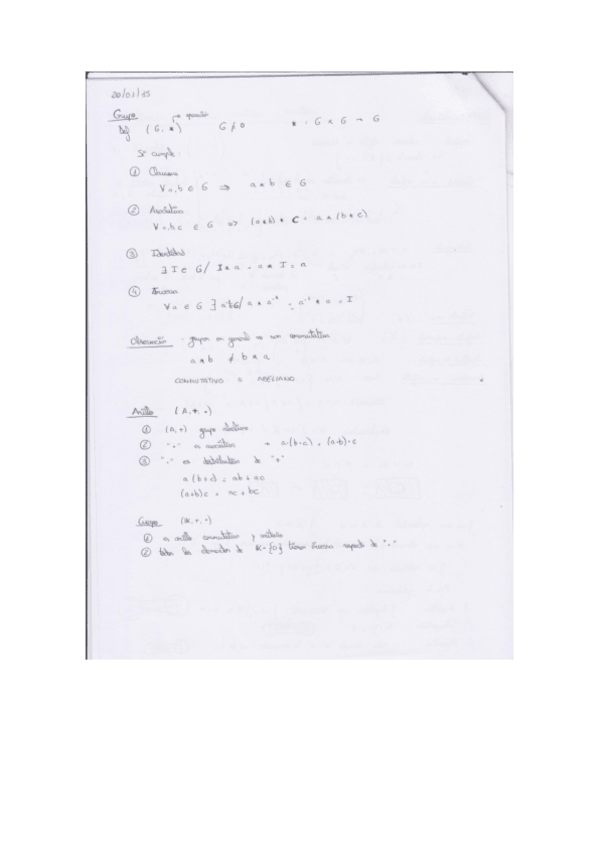 20/01/15
Grupo
operación
Def (G, *) G ≠ 0 * : G x G → G
Si cumple:
① Clausura
∀a,b ∈ G ⇒ a * b ∈ G
② Asociativa
∀a,b,c ∈ G => (a*b) * c = a * (b * c)
③ Identidad
∃ I ∈ G / I * a = a * I = a
④ Inverso
∀a ∈ G ∃ a⁻¹∈G/ a * a⁻¹ = a⁻¹ * a = I
Observación grupos en general no son conmutativos
a * b ≠ b * a
CONMUTATIVO = ABELIANO
Anillo (A, +, ·)
① (A, +) grupo abeliano
② "·" es asociativa → a·(b·c) = (a·b)·c
③ "·" es distributiva de "+"
a (b+c) = ab + ac
(a+b)c = ac + bc
(K, +, ·)
① es anillo conmutativo y unitario
② todos los elementos de K-{0} tienen inverso respecto de "·"